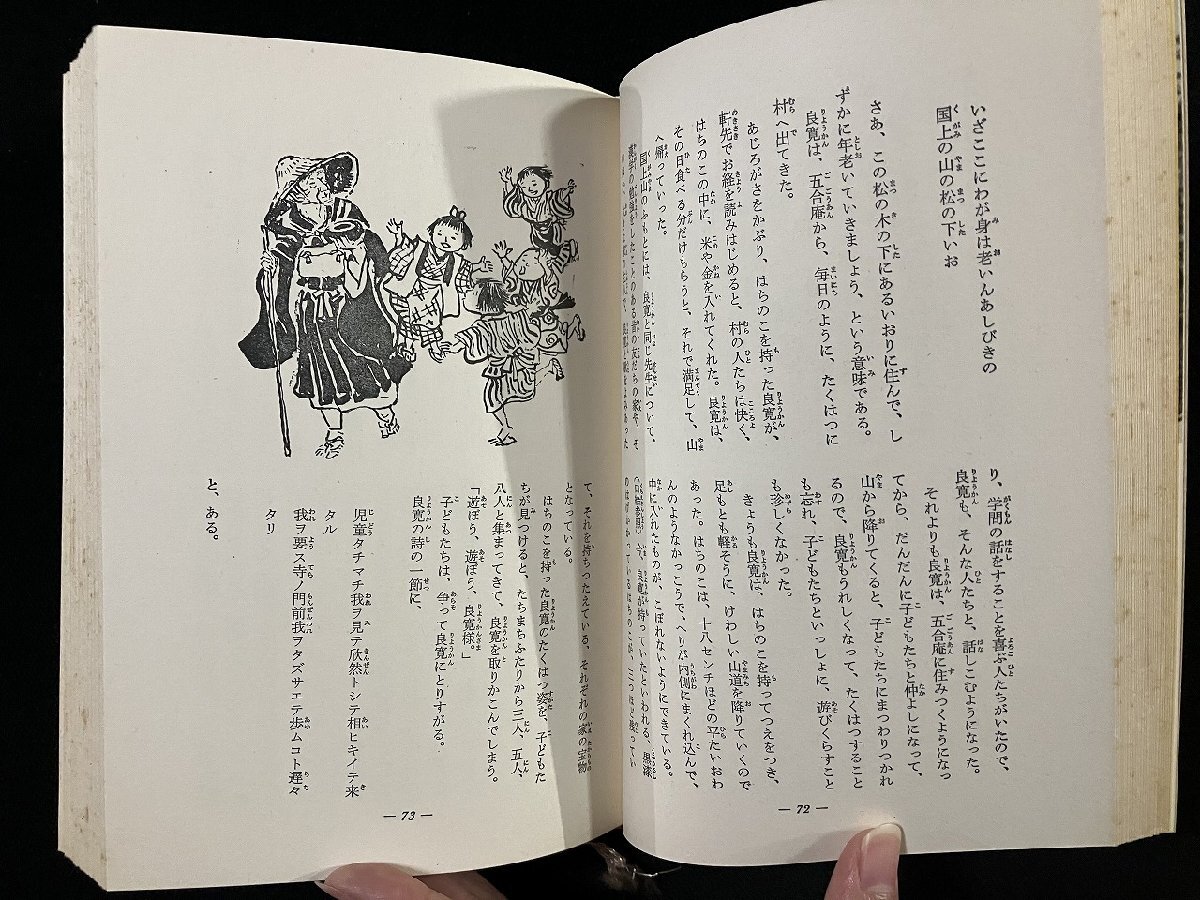 いざここにわが身は老いんあしびきの
国上の山の松の下いお
さあ、この松の木の下にあるいおりに住んで、し
ずかに年老いていきましょう、という意味である。
良寛は、五合庵から、毎日のように、たくはつに
村へ出てきた。
あじろがさをかぶり、はちのこを持った良寛が、
軒先でお経を読みはじめると、村の人たちは快く、
はちのこの中に、米や金を入れてくれた。良寛は、
その日食べる分だけもらうと、それで満足して、山
へ帰っていった。
国上山のふもとには、良寛と同じ先生について、
をしたことのある昔の友だちの家や、そ
り、学問の話をすることを喜ぶ人たちがいたので、
良寛も、そんな人たちと、話しこむようになった。
それよりも良寛は、五合庵に住みつくようになっ
てから、だんだんに子どもたちと仲よしになって、
山から降りてくると、子どもたちにまつわりつかれ
るので、良寛もうれしくなって、たくはつすること
も忘れ、子どもたちといっしょに、遊びくらすこと
も珍しくなかった。
きょうも良寛は、はちのこを持ってつえをつき、
足もとも軽そうに、けわしい山道を降りていくので
あった。はちのこは、十八センチほどの平たいおわ
んのようなかっこうで、へりが内側にまくれ込んで、
中に入れたものが、こぼれないようにできている。
良寛が持っていたといわれる、黒漆
— 72 —
て、それを持ちつたえている、それぞれの家の宝物
となっている。
はちのこを持った良寛のたくはつ姿を、子どもた
ちが見つけると、たちまちふたりから三人、五人、
八人と集まってきて、良寛を取りかこんでしまう。
「遊ぼう、遊ぼう、良寛様。」
子どもたちは、争って良寛にとりすがる。
良寛の詩の一節に、
児童タチマチ我ヲ見テ欣然トシテ相ヒキイテ来
タル
我ヲ要ス寺ノ門前我ヲタズサエテ歩ムコト遅々
タリ
と、ある。
— 73 —